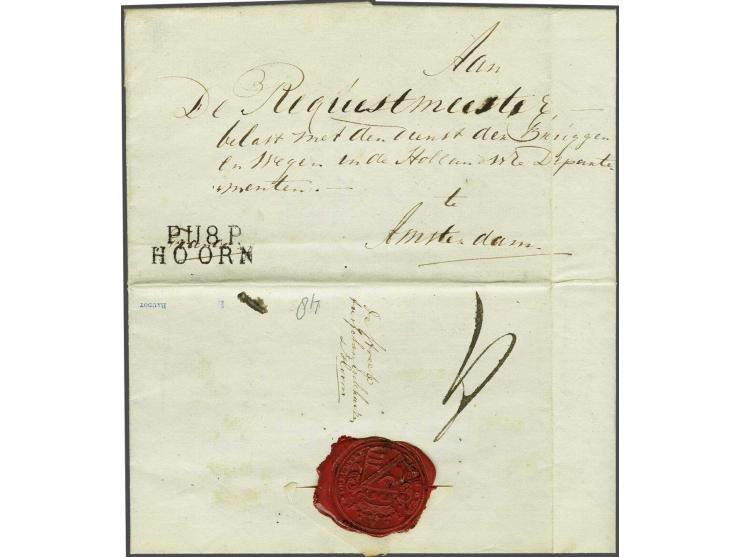 Aan
De Requestmeester
belast met den dienst der Bruggen
en Wegen in de Hollandsche Departe
menten.
te
Amsterdam
P118P
HOORN
48
Hoorn